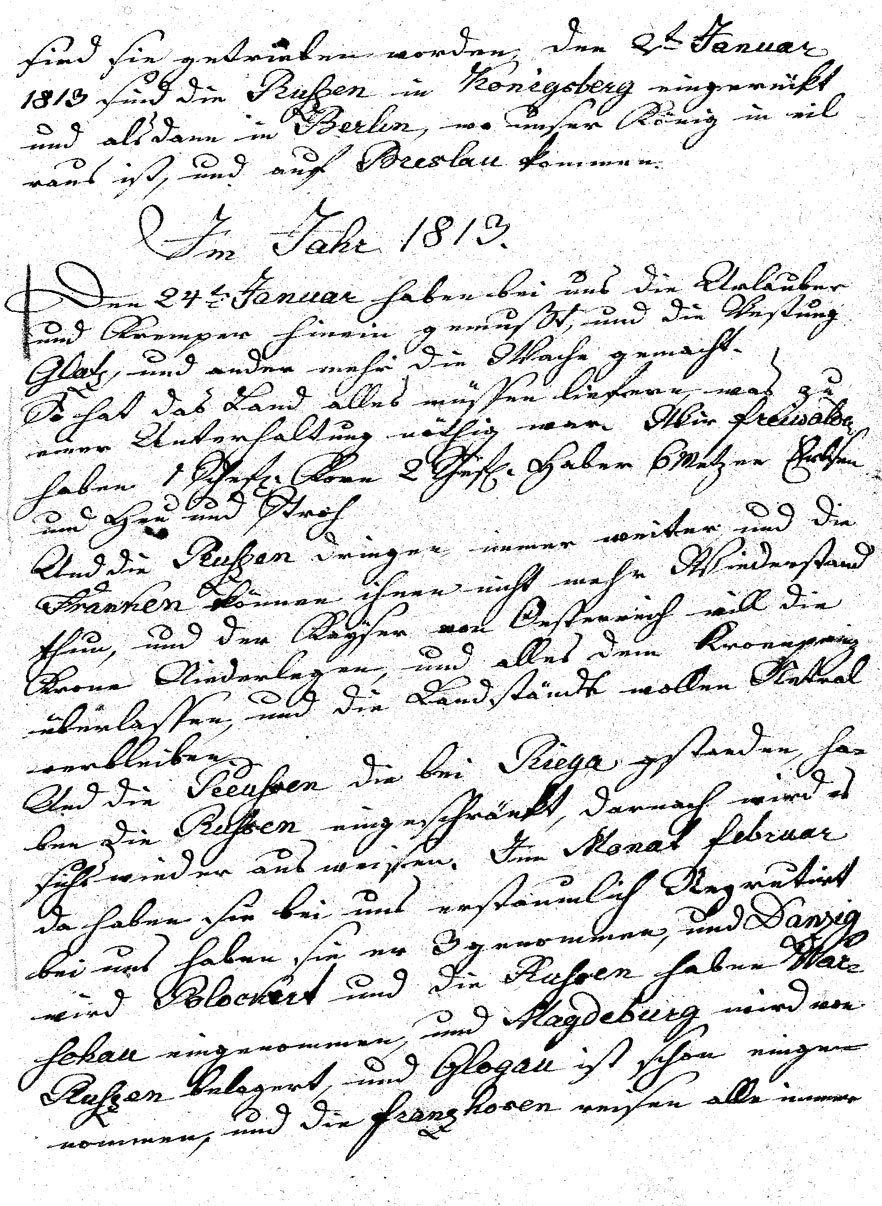 sind sie getrieben worden, den 2t Januar
1813 sind die Rußen in Königsberg eingerückt
und alsdann in Berlin, wo unser König in eil
raus ist, und auf Breslau kommen.
Im Jahr 1813.
Den 24t Januar haben bei uns die Urlauber
und Kremper hinein gemußt, und die Vestung
Glatz, und ander mehr die Wache gemacht.
So hat das Land alles müssen liefern, was zu
einer Unterhaltung nöthig war. Wir freiwalde
haben 1 Schef. Korn 2 Schef. Haber 6 Metzen Erbsen
und Heu und Stroh
Und die Reußen dringen immer weiter und die
Franken können ihnen nicht mehr Wiederstand
thun, und der Kayser von Oesterreich will die
Krone Niederlegen, und alles dem Kronprinz
überlassen, und die Landstände wollen Netral
verbleiben.
Und die Preussen die bei Riega gestanden, ha-
ben die Russen eingeschränkt, darnach wird es
sichs wieder ausweisen. Im Monat februar
da haben sie bei uns erstaunlich Regrutirt
bei uns haben sie er 3 genommen, und Danzig
wird Blockirt und die Russen haben War-
schau eingenommen, und Magdeburg wird von
Rußen belagert, und Glogau ist schon einge-
nommen, und die franzhosen reisen alle immer